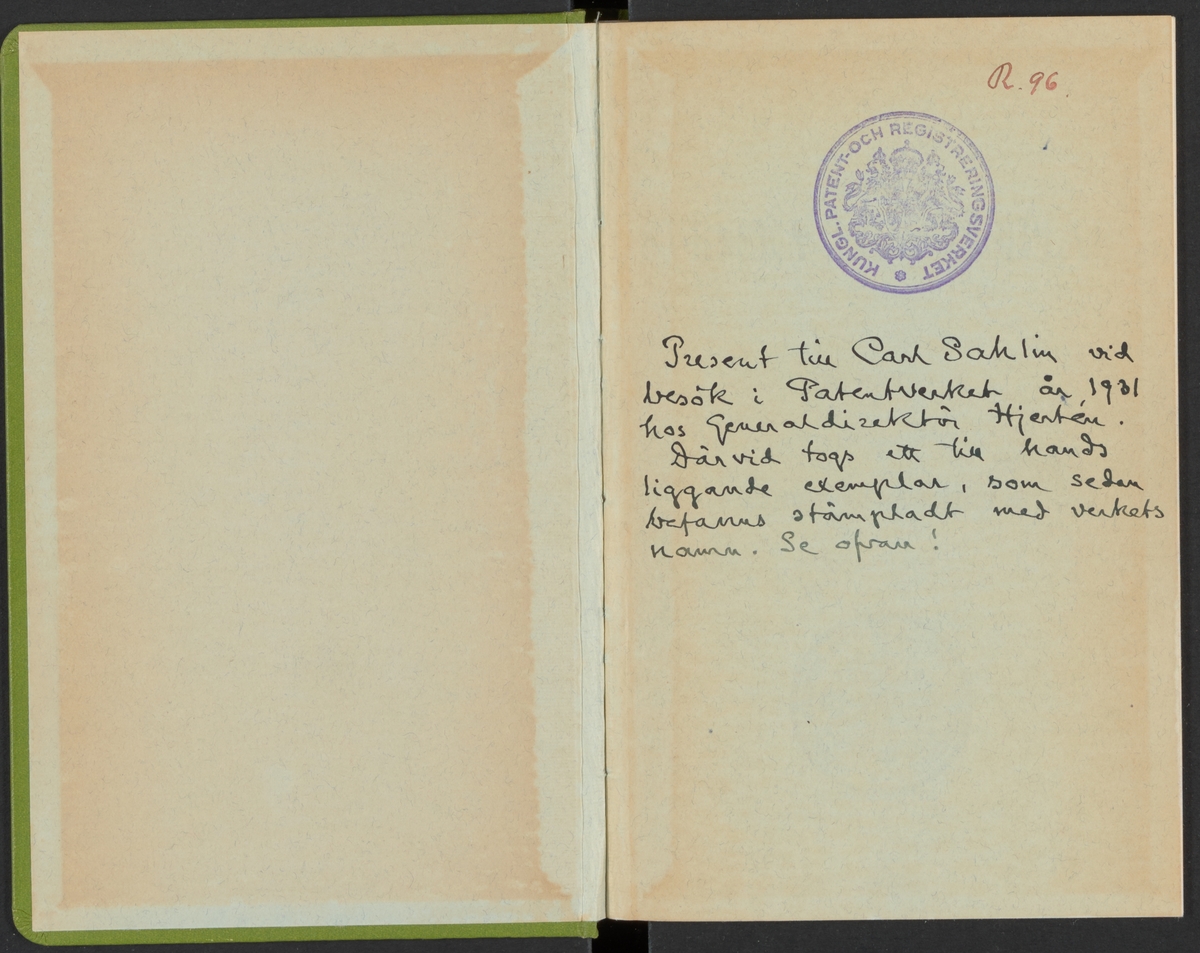 R. 96
KUNGL. PATENT- OCH REGISTRERINGSVERKET
Present till Carl Sahlin vid
besök i Patentverket år 1931
hos Generaldirektör Hjertén.
Därvid togs ett till hands
liggande exemplar, som sedan
befanns stämpladt med verkets
namn. Se ofvan!